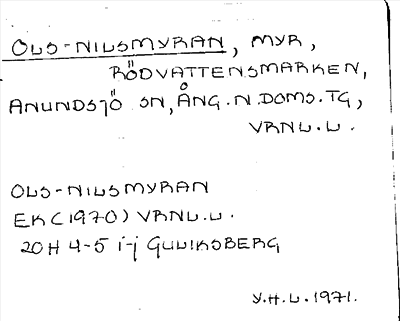 OLS-NILSMYRAN, MYR,
RÖDVATTENSMARKEN,
ANUNDSJÖ SN, ÅNG.N.DOMS.TG,
VRNL.L.
OLS-NILSMYRAN
EK(1970) VRNL.L.
20H 4-5 i-j GULIKSBERG
Y.H.L.1971.